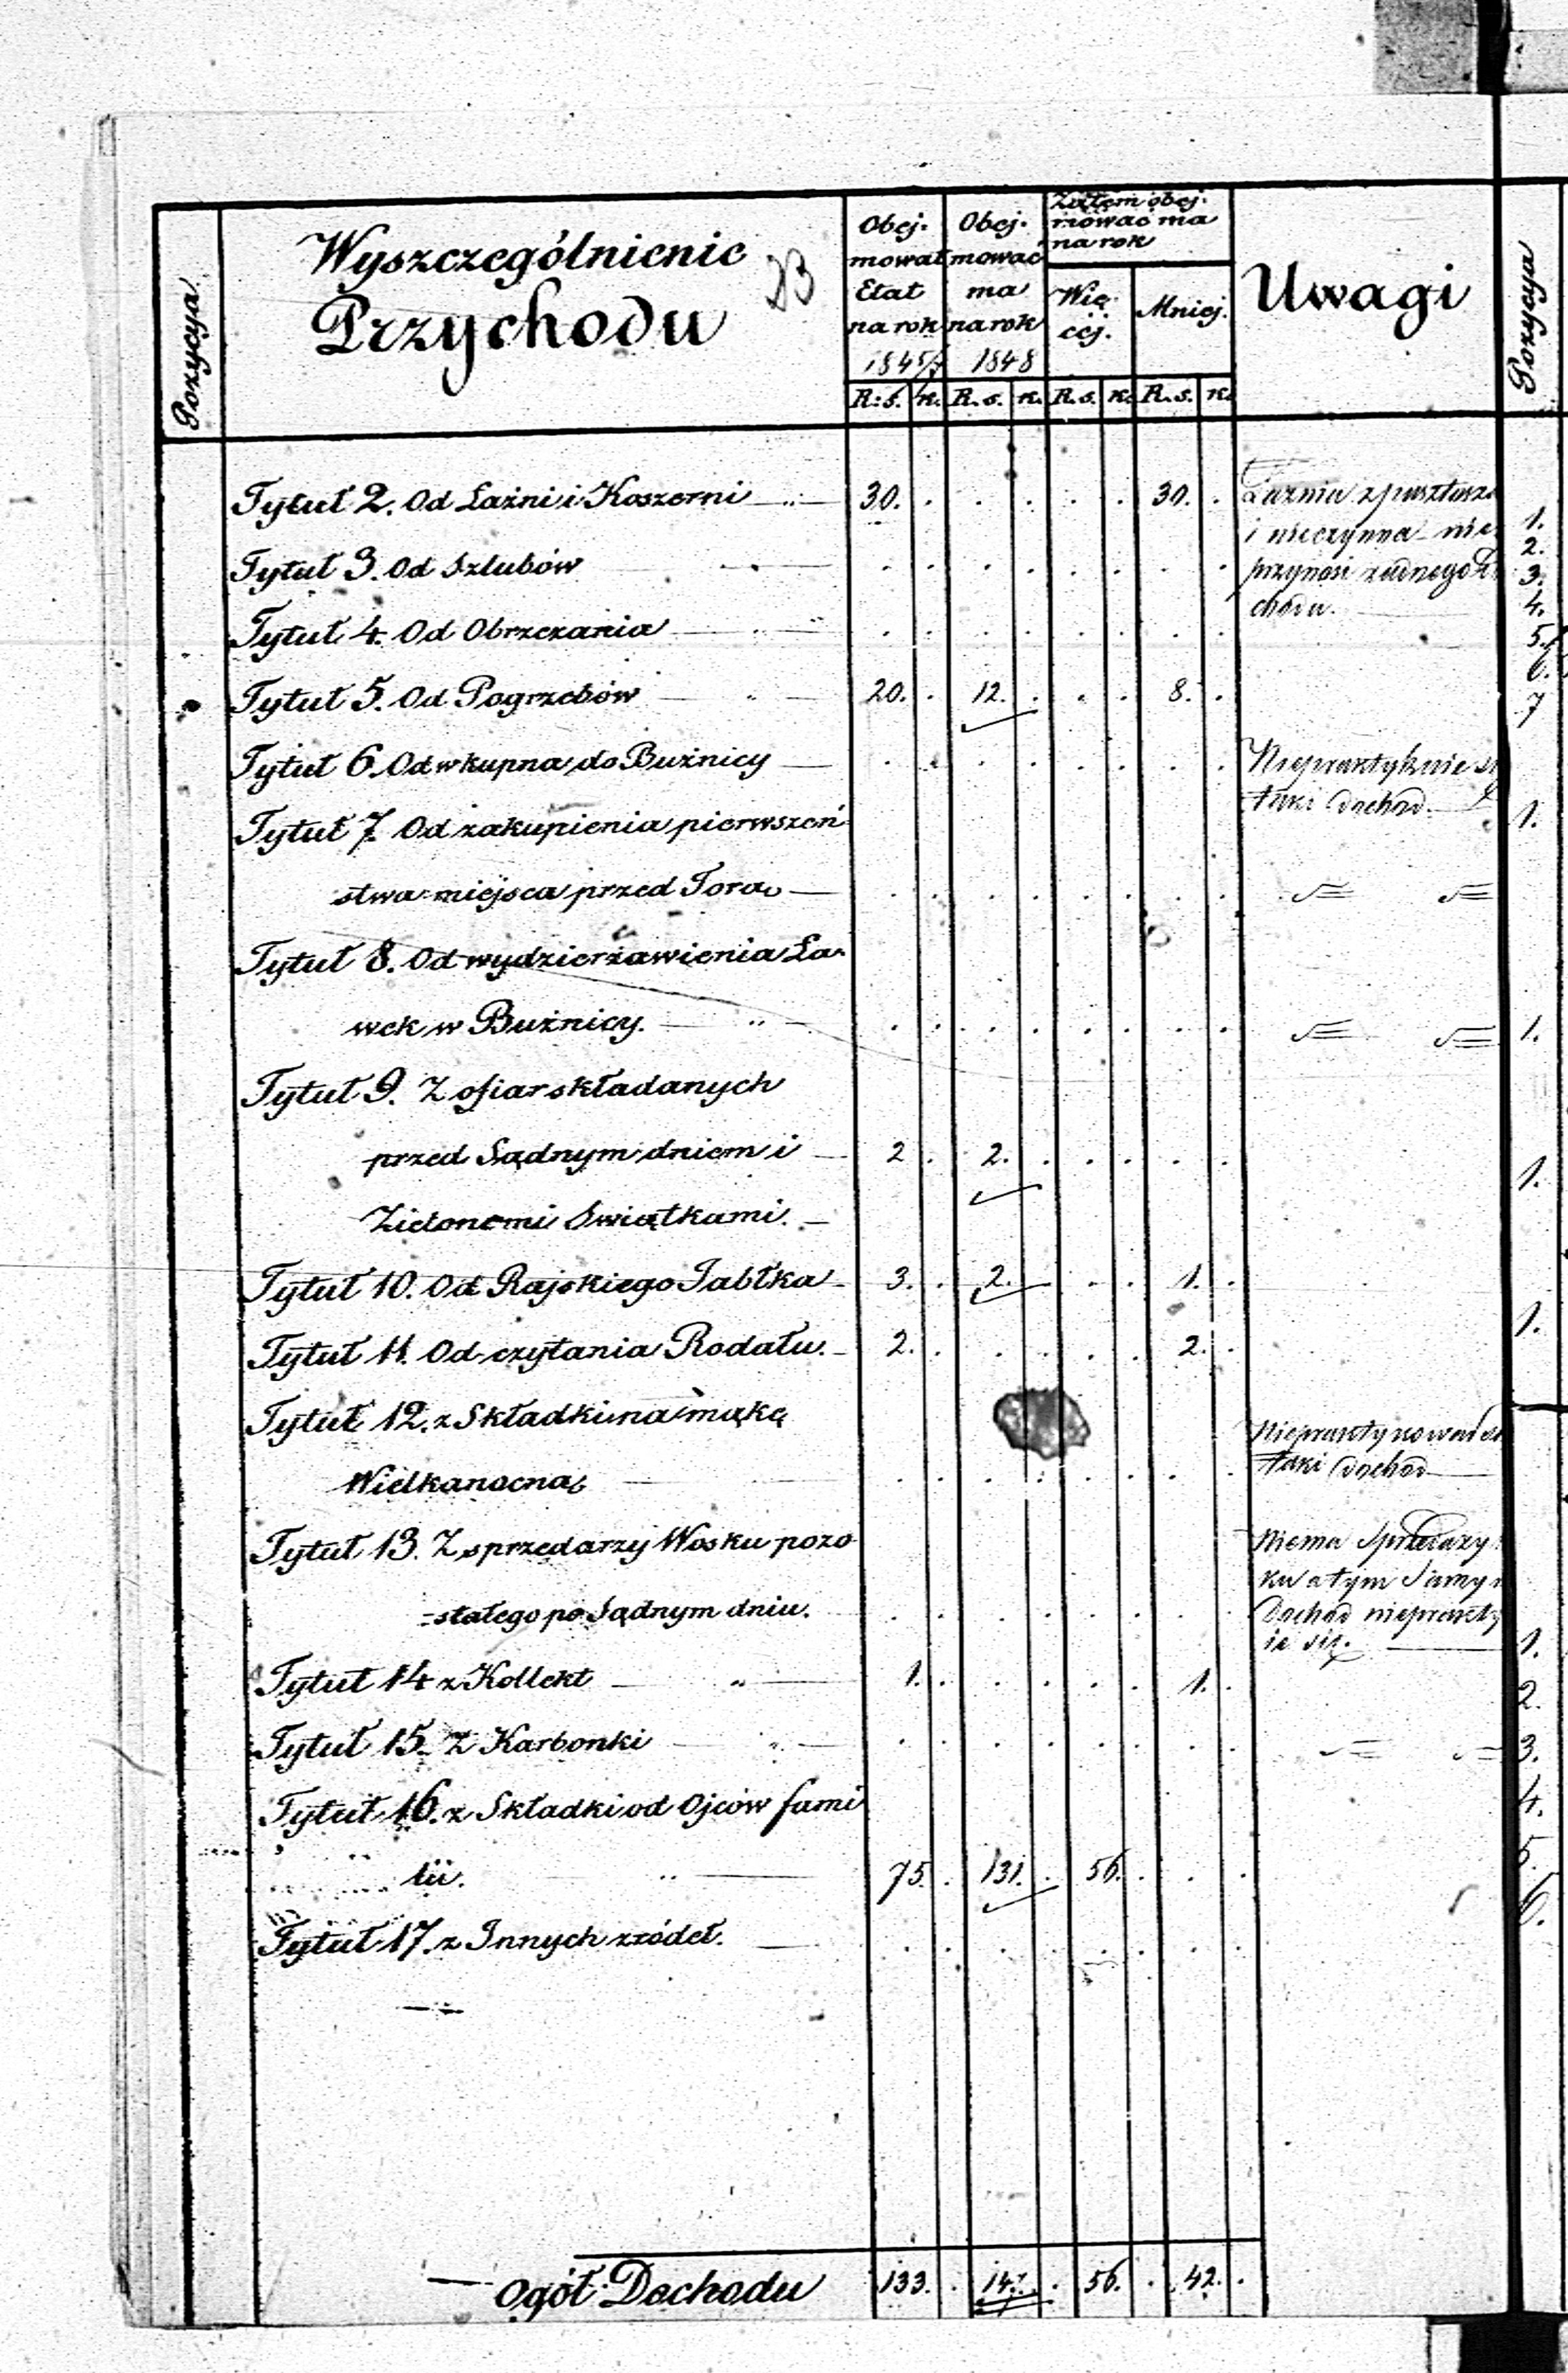 Pozycya
Wyszczególnienie
Przychodu
Obej-
mował
Etat
na rok
1845/7
Obej-
mować
ma
na rok
1848
Zatem obej-
mować ma
na rok
Wię-
céj.
Mniej.
Uwagi
Pozycya
R: s. k. R. s. k. R. s. k. R. s. k.
Tytuł 2. Od Łaźni i Koszerni 30. 30.
Łaznia spustosz
i nieczynna nie
przynosi żadnego
chodu.
Tytuł 3. Od Szlubów
Tytuł 4. Od Obrzezania
Tytuł 5. Od Pogrzebów 20. 12. 8.
Tytuł 6. Od wkupna do Bużnicy
Niepraktykuie
taki dochod
Tytuł 7. Od zakupienia pierwszeń
stwa miejsca przed Torą
Tytuł 8. Od wydzierżawienia Ła-
wek w Bużnicy.
Tytuł 9. Z ofiar składanych
przed Sądnym dniem i 2 2.
Zielonemi Swiątkami.
Tytuł 10. Od Rajskiego Jabłka 3. 2. 1.
Tytuł 11. Od czytania Rodału. 2. 2.
Tytuł 12. z Składki na mąkę
Wielkanocną
Niepraktykował
taki dochod
Tytuł 13. Z sprzedarzy Wosku pozo
-stałego po Sądnym dniu.
Niema Sprzedazy
ku a tym Samym
dochod nieprakty
ie się.
Tytuł 14 z Kollekt 1. 1.
Tytuł 15. Z Karbonki
Tytuł 16. z Składki od Ojców fami
lii. 75. 131. 56.
Tytuł 17. z Innych zródeł.
Ogół Dochodu 133. 147. 56. 42.
1.
2.
3.
4.
5.
6.
7
1.
1.
1.
1.
1.
2.
3.
4.
5.
6.